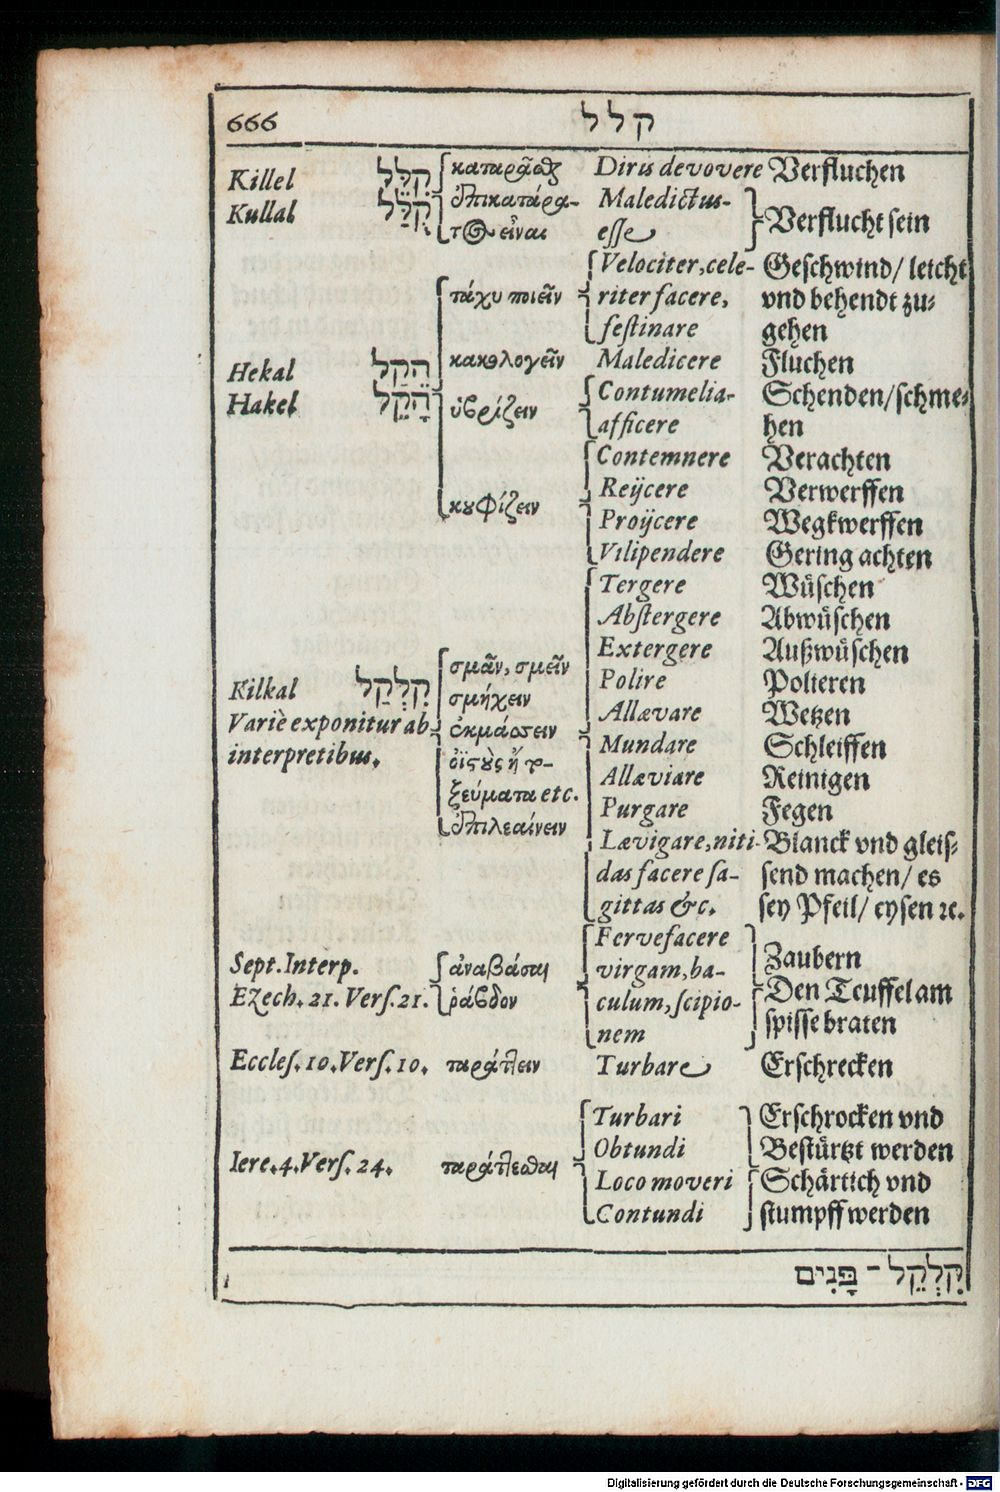 666 קלל
Killel קִלֵּל καταρᾶσθαι Diris devovere Verfluchen
Kullal קֻלַּל ἐπικατάρα- Maledictus-
τος εἶναι esse Verflucht sein
Velociter, cele- Geschwind/ leicht
πάχυ ποιεῖν riter facere, vnd behendt zu-
festinare gehen
Hekal הֵקַל κακολογεῖν Maledicere Fluchen
Hakel הָקֵל ὑβρίζειν Contumelia- Schenden/schme-
afficere hen
Contemnere Verachten
κουφίζειν Reijcere Verwerffen
Proijcere Wegkwerffen
Vilipendere Gering achten
Tergere Wüschen
Abstergere Abwüschen
σμᾶν, σμεῖν Extergere Außwüschen
Kilkal קִלְקַל σμήχειν Polire Polieren
Variè exponitur ab ἐκμάσσειν Allævare Wetzen
interpretibus. Mundare Schleiffen
οἰστοὺς ἢ Allæviare Reinigen
ξεύματα etc. Purgare Fegen
ἐπιλεαίνειν Lævigare, niti- Blanck vnd gleis-
das facere sa- send machen/ es
gittas &c. sey Pfeil/ eysen ꝛc.
Fervefacere
Sept. Interp. ἀναβάσαι virgam, ba- Zaubern
Ezech. 21. Vers. 21. ῥάβδον culum, scipio- Den Teuffel am
nem spisse braten
Eccles. 10. Vers. 10. ταράττειν Turbare Erschrecken
Turbari Erschrocken vnd
Obtundi Bestürtzt werden
Iere. 4. Vers. 24. ταράττεσθαι Loco moveri Schärtich vnd
Contundi stumpff werden
קִלְקֵל־פָּנִים
Digitalisierung gefördert durch die Deutsche Forschungsgemeinschaft - DFG